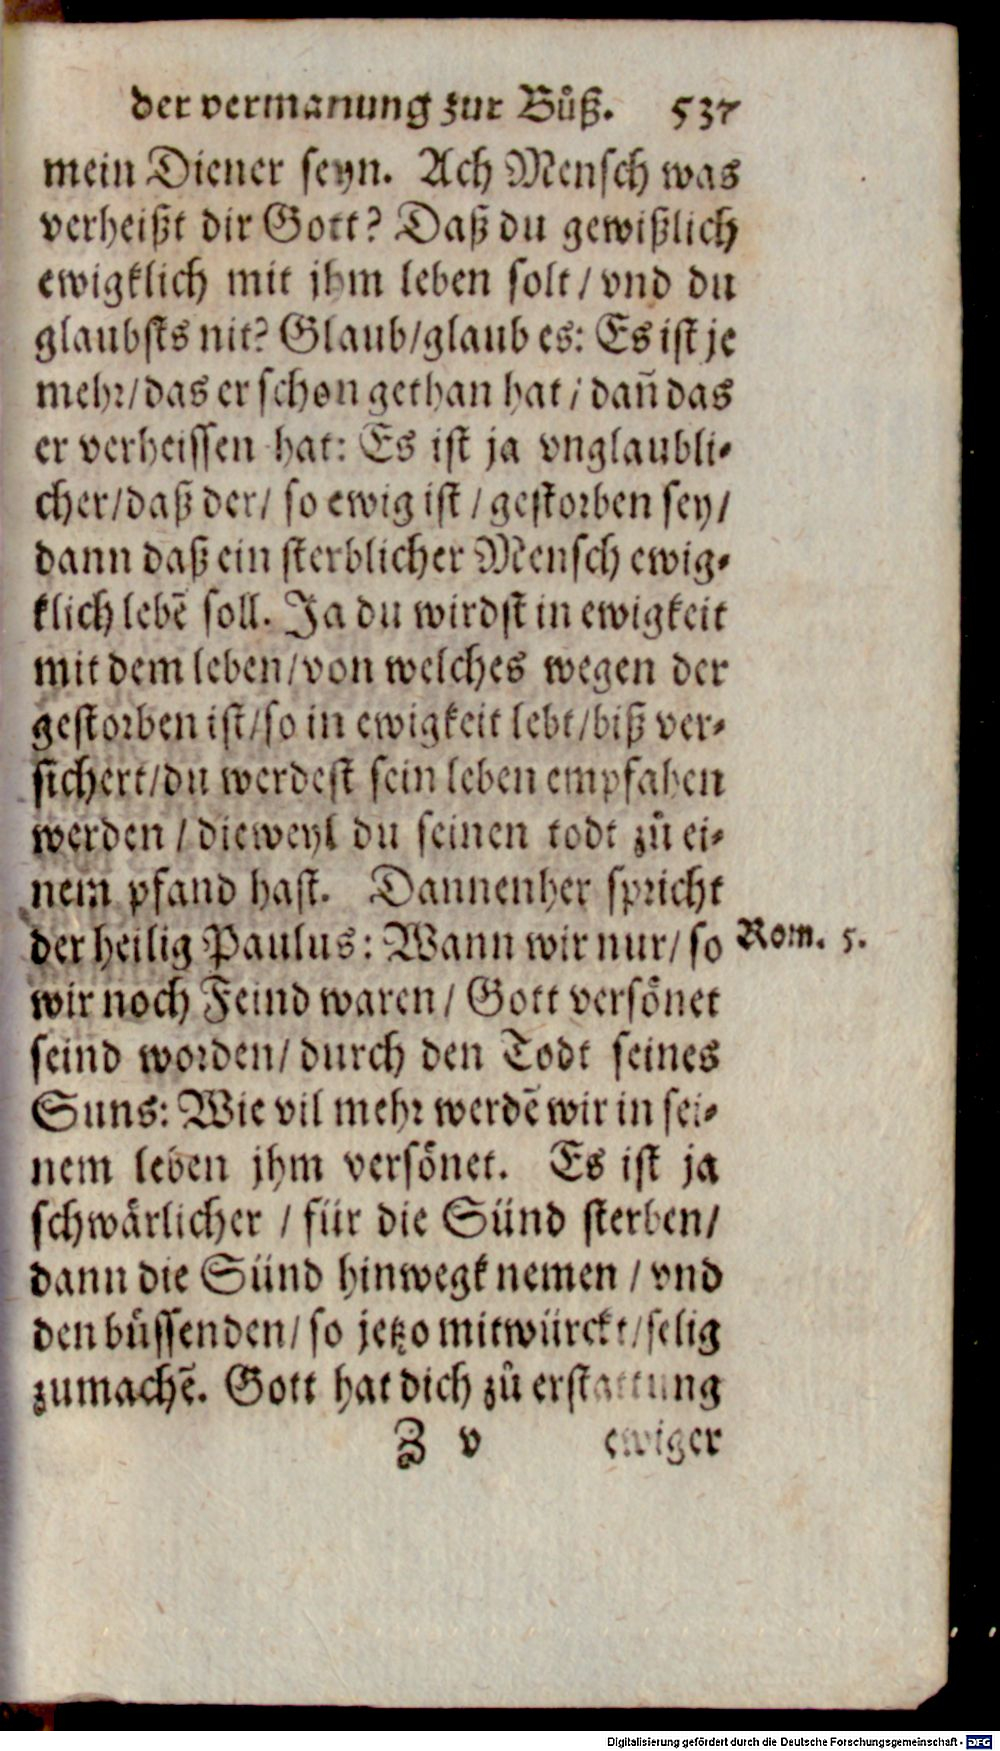 der vermanung zur Bůß. 537
mein Diener seyn. Ach Mensch was
verheißt dir Gott? Daß du gewißlich
ewigklich mit jhm leben solt / vnd du
glaubsts nit? Glaub/glaub es: Es ist je
mehr/das er schon gethan hat / dañ das
er verheissen hat: Es ist ja vnglaubli-
cher/daß der/ so ewig ist / gestorben sey/
dann daß ein sterblicher Mensch ewig-
klich lebē soll. Ja du wirdst in ewigkeit
mit dem leben/von welches wegen der
gestorben ist/so in ewigkeit lebt/biß ver-
sichert/du werdest sein leben empfahen
werden / dieweyl du seinen todt zů ei-
nem pfand hast. Dannenher spricht
der heilig Paulus: Wann wir nur/ so
Rom. 5.
wir noch Feind waren/ Gott versönet
seind worden/ durch den Todt seines
Suns: Wie vil mehr werdē wir in sei-
nem leben jhm versönet. Es ist ja
schwärlicher / für die Sünd sterben/
dann die Sünd hinwegk nemen / vnd
den bůssenden/ so jetzo mitwürckt/selig
zumachē. Gott hat dich zů erstattung
Z v ewiger
Digitalisierung gefördert durch die Deutsche Forschungsgemeinschaft - DFG